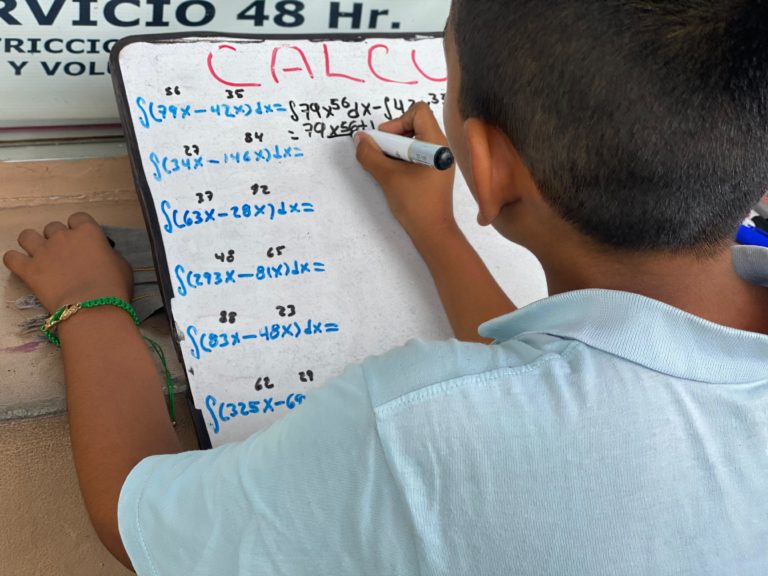 RVICIO 48 Hr.
Y VOL
CALCU
∫(79x⁵⁶-42x³⁵)dx=∫79x⁵⁶dx-∫42
=79x⁵⁶⁺¹
∫(34x²⁷-146x⁸⁴)dx=
∫(63x³⁷-28x⁹²)dx=
∫(293x⁴⁸-81x⁶⁵)dx=
∫(83x⁸⁸-48x²³)dx=
∫(325x⁶²-6 ²⁹